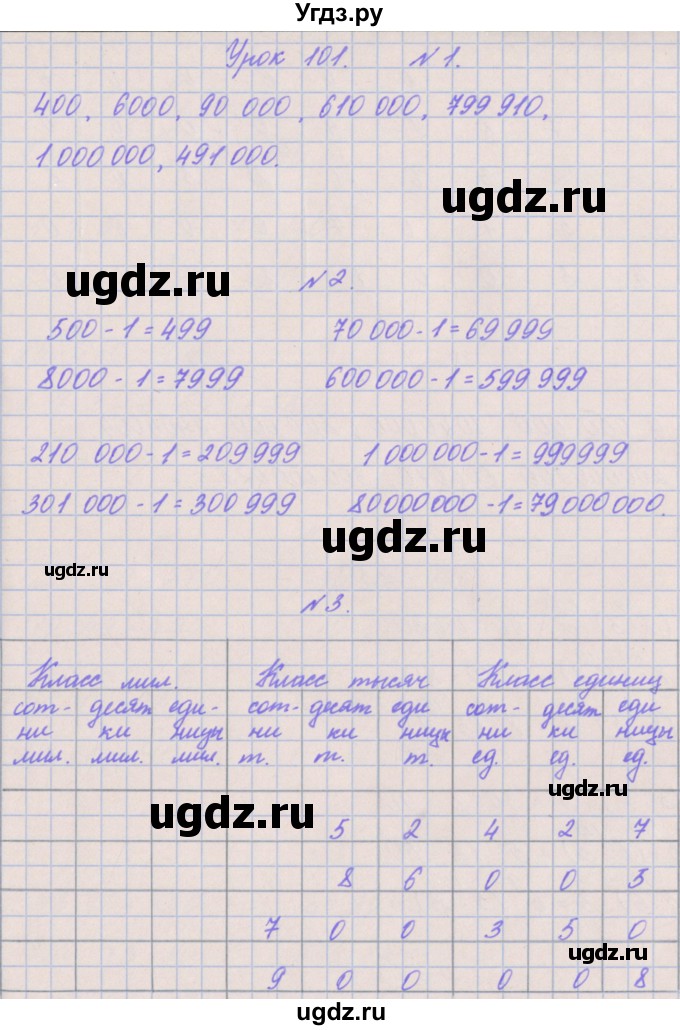 Угдз.ру
Урок 101. №1.
400, 6000, 90 000, 610 000, 799 910,
1 000 000, 491 000.
ugdz.ru
ugdz.ru
№2.
500 - 1 = 499 70 000 - 1 = 69 999
8000 - 1 = 7999 600 000 - 1 = 599 999
210 000 - 1 = 209 999 1 000 000 - 1 = 999999
301 000 - 1 = 300 999 80000000 - 1 = 79 000 000.
ugdz.ru
ugdz.ru
№3.
Класс мил. Класс тысяч Класс единиц
сот- десят еди- сот- десят еди сот- десят еди
ни ки ницы ни ки ницы ни ки ницы
мил. мил. мил. т. т. т. ед. ед. ед.
ugdz.ru
ugdz.ru
5 2 4 2 7
8 6 0 0 3
7 0 0 3 5 0
9 0 0 0 0 8
ugdz.ru